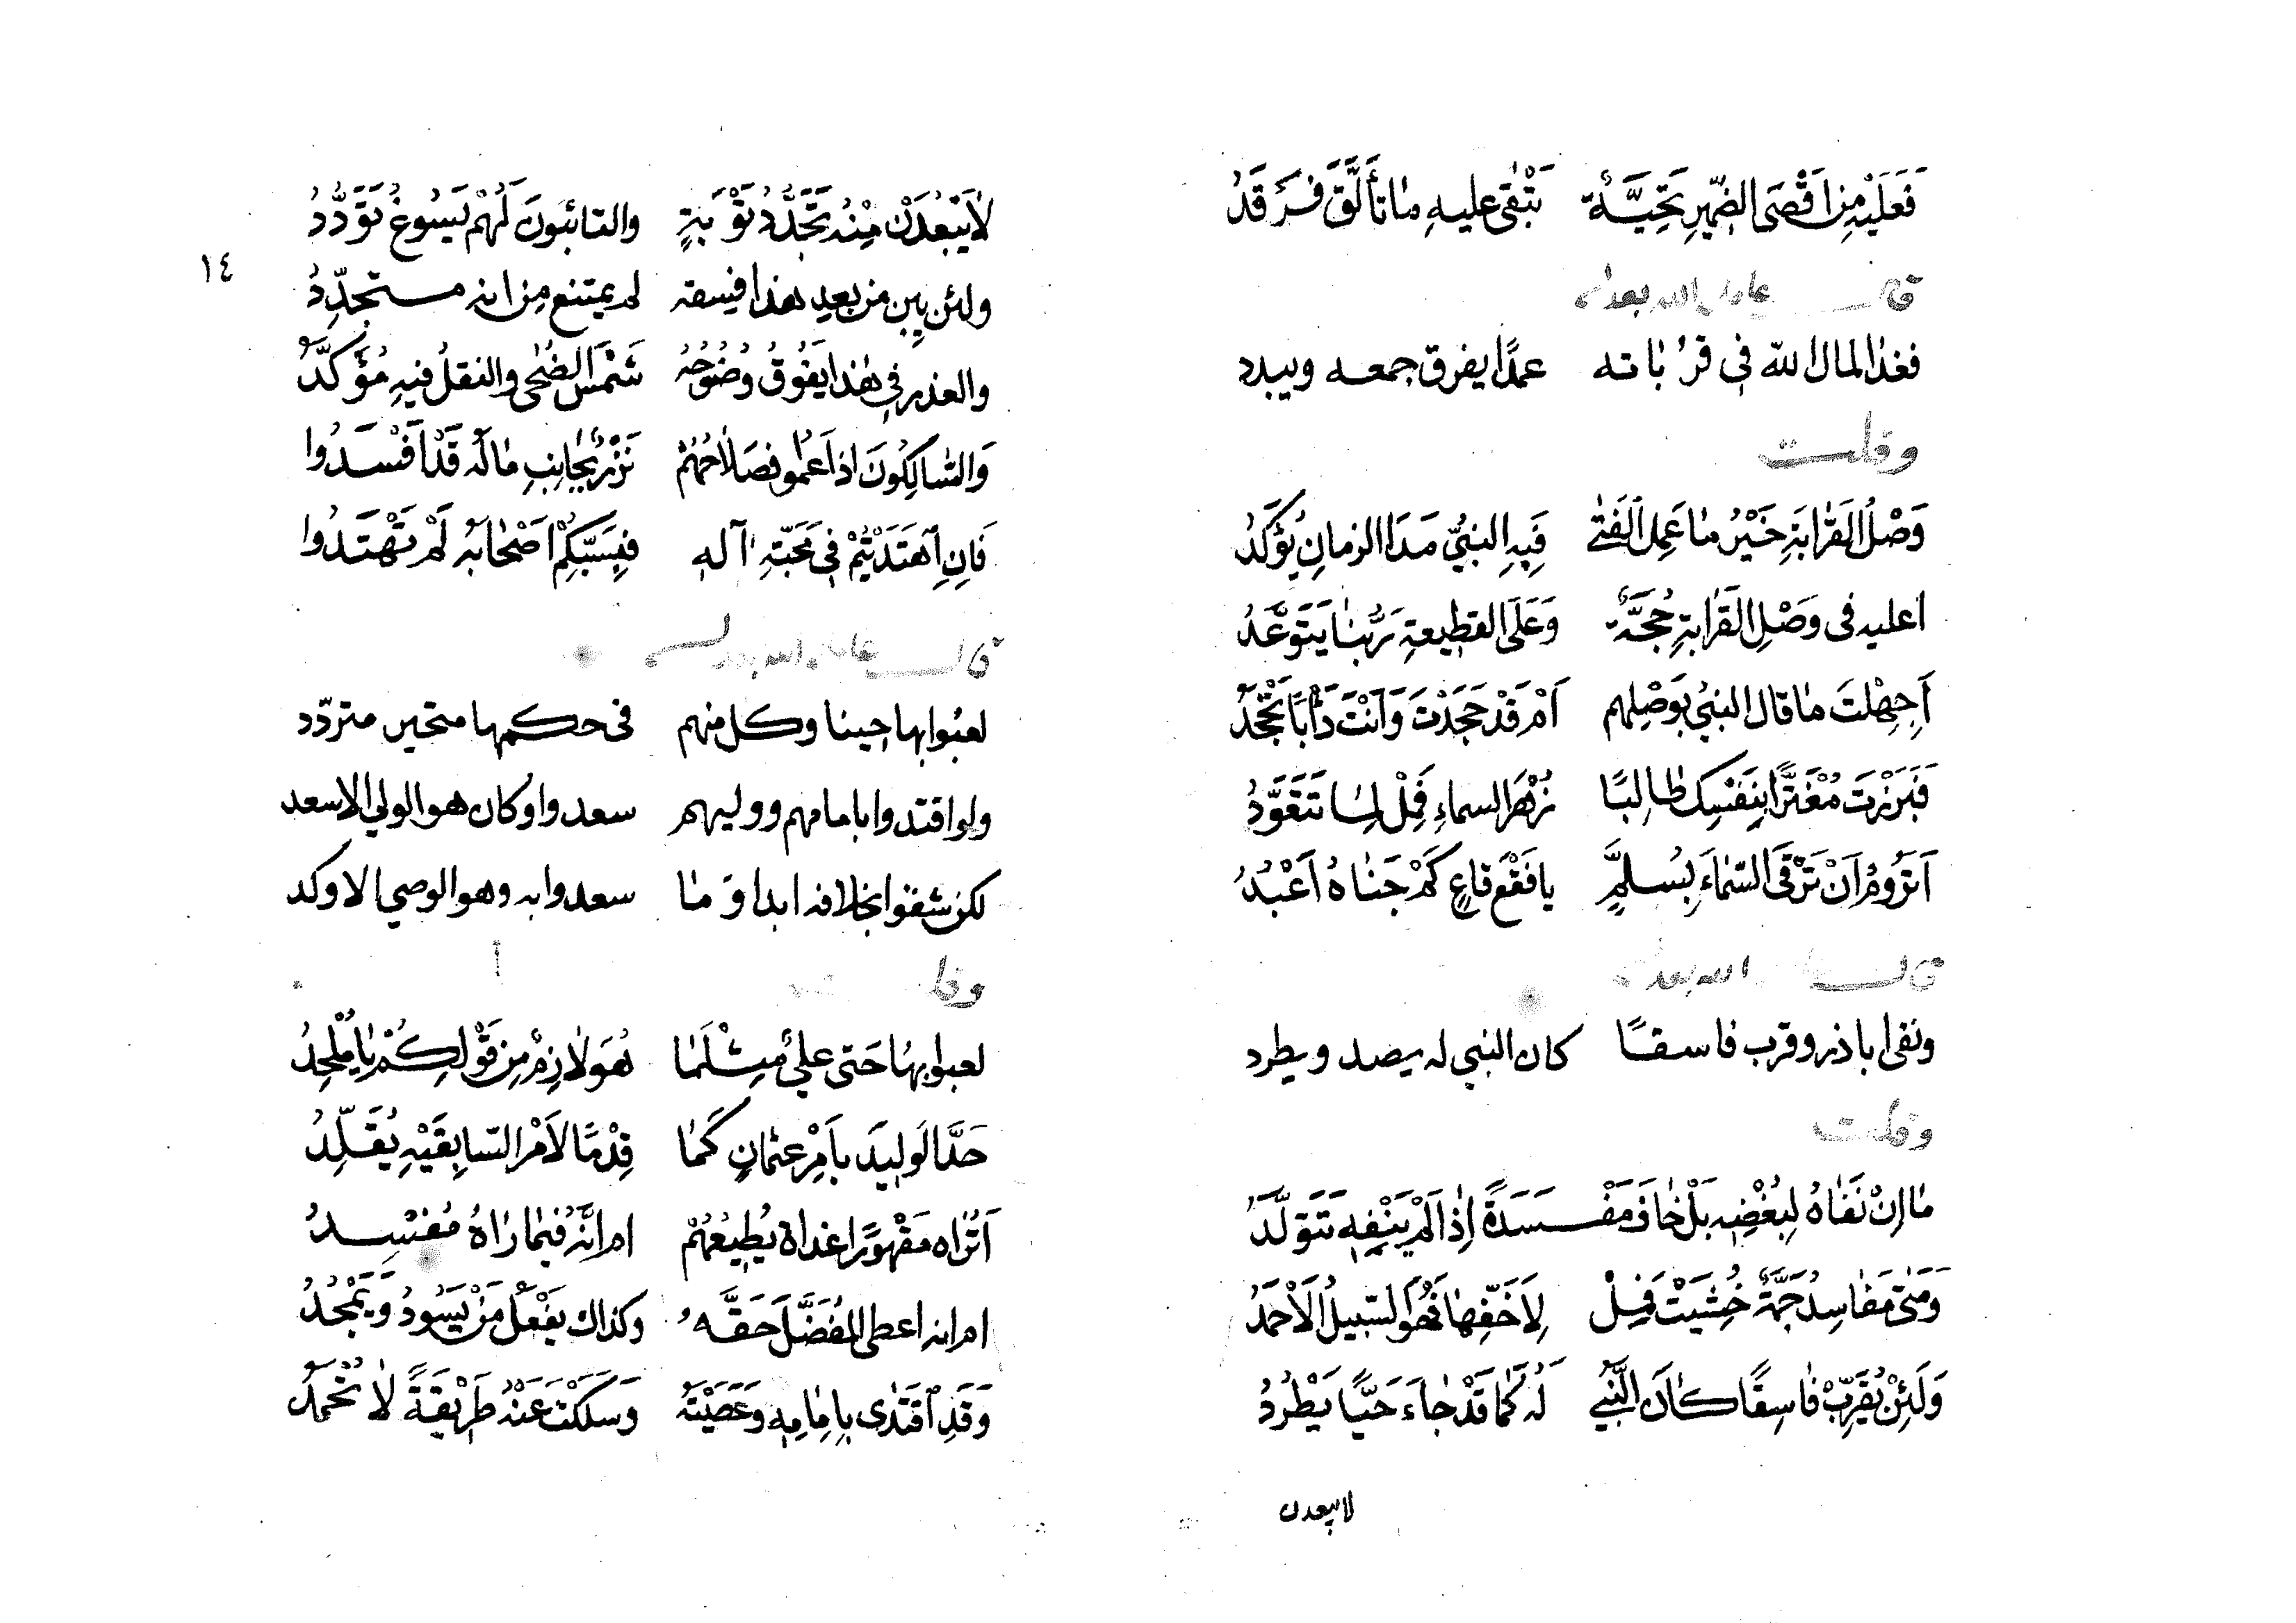 فَعَلَيْهِ مِنْ اَقْصَى الضَّمِيرِ تَحِيَّةٌ تَبْقٰى عليهِ مٰا تأَلَّقَ فَرْقَدُ
قال عامله الله بعدله
فغذا لمال اللّه في قُرْبٰاته عمدًا يفرق جمعه ويبدد
وقلت
وَصْلُ القَرٰابَةِ خَيْرُ مٰا عَمِلَ الفَتٰى فَبِهِ النبيُّ مَدَا الزمانِ يُؤَكِّدُ
اعليه فى وَصْلِ القَرٰابةِ حُجَّةٌ وَعَلَى القطيعةِ رَبُّنٰا يَتَوَعَّدُ
اَجَهِلْتَ مٰا قال النبيُ بوَصْلِهم اَمْ قَدْ جَحَدْتَ وَاَنْتَ دَأْبًا تَجْحَدُ
فَبَرَزْتَ مُغْتَرًّا بِنَفْسِكَ طٰالِبًا زُهْرَ السماءِ فَمِلْ لِمٰا تَتَعَوَّدُ
اَتَرُومُ اَنْ تَرْقَى السَّمٰاءَ بِسُلَّمٍ يا فَقْعَ قاعٍ كَمْ جَنٰاهُ اَعْبُدُ
قال الله بعد
ونفى ابا ذر وقرب فاسقًا كان النبي له يصد ويطرد
وقلت
مٰا اِنْ نَفَاهُ لِبُغْضِهِ بَلْ خٰافَ مَفْسَدَةً اِذَا لَمْ يَنْفِهِ تَتَوَلَّدُ
وَمَتٰى مَفٰاسِدُ جَمَّةٌ خُشِيَتْ فَمِلْ لِاَخَفِّهٰا نَحْوَ السَّبيلُ الْاَحْمَدُ
وَلَئِنْ يُقَرِّبْ فٰاسِقًا كٰانَ النَّبِي لَهُ كَمٰا قَدْ جٰاءَ حَيًّا يَطْرُدُ
لا يبعدن
لاٰ يَبْعُدَنْ مِنْهُ تَجَدُّدُ تَوْبَةٍ والتائبُونَ لَهُمْ يَسُوغُ تَوَدُّدُ
١٤
ولئن يبن من بعدِ هٰذا فسقه لم يمتنع مِن انه مستجدِّدُ
والعذر في هٰذا يَفُوقُ وُضُوحُهُ شَمْسَ الضُحٰى والنقلُ فيهِ مُؤَكَّدُ
وَالسّٰالِكُونَ اذا عَمُو فصَلاٰحُهُمْ نَزْرٌ بِجٰانِبِ مٰا لَهُ قَدْ اَفْسَدُوا
فَاِنِ اهْتَدَيْتُمْ فى مَحَبَّتِهِ آلهِ فبِسَبِّكِمْ اَصْحٰابَهُ لَمْ تَهْتَدُوا
قال
لعبوا بها حينا وكل منهم فى حكمها متحير متردّد
ولو اقتدوا بامامهم ووليهم سعدوا وكان هو الولي الاسعد
لكن شقوا بخلافه ابدا وَمٰا سعدوا به وهو الوصي الاوكد
وقلت
لعبوا بهٰا حَتى عليٌ مِثْلَمٰا هُوَ لاٰزِمٌ مِن قَوْلِكُمْ يٰا مُلْحِدُ
حَدَّ الَولِيدَ بأمْرِ عثمانٍ كَمٰا قِدْمًا لاَمْرِ السّابِقَيْهِ يُقَلِّدُ
اَتُرٰاه مَقْهوًرا غداةَ يُطِيعُهُمْ ام اَنَّهُ فيمٰا رَاٰهُ مُفسِدُ
ام انه اعطى المُفَضَّلَ حَقَّهُ وكذاك يَفْعَلُ مَنْ يَسُودُ وَيَمْجُدُ
وَقَدِ اقْتَدٰى بِإمٰامِهِ وَعَصَيْتَهُ وَسَلَكْتَ عَنْهُ طَرِيْقَةً لاٰ تُحْمَدُ